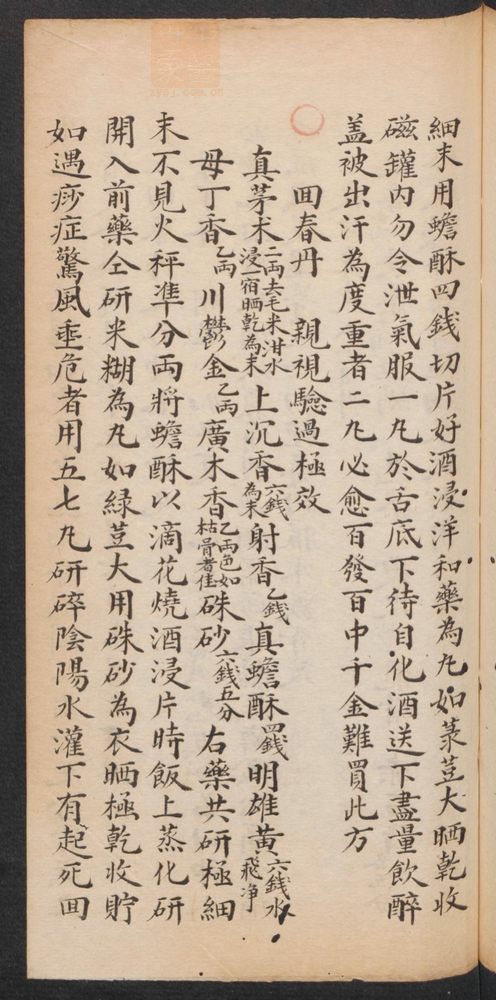 細末用蟾酥四錢切片好酒浸洋和藥為丸如菉荳大晒乾收
磁罐内勿令泄氣服一丸於舌底下待自化酒送下盡量飲醉
盖被出汗為度重者二丸必愈百發百中千金難買此方
回春丹 親視驗過極效
真茅术二両去毛米泔水浸一宿晒乾為末上沉香六錢為末射香乙錢真蟾酥四錢明雄黄六錢水飛净
母丁香乙両川鬱金乙両廣木香乙両色如枯骨者佳硃砂六錢五分 右藥共研極細
末不見火秤準分両將蟾酥以滴花燒酒浸片時飯上蒸化研
開入前藥仝研米糊為丸如緑荳大用硃砂為衣晒極乾收貯
如遇痧症驚風垂危者用五七丸研碎陰陽水灌下有起死回